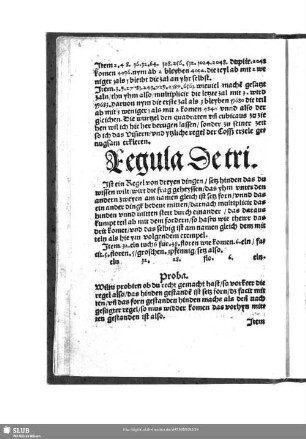 Item 2. 4. 8. 16. 32. 64. 128. 256. 512. 1024. 2048. duplir. 2048
komen 4096. nym ab 2 bleyben 4094. die teyl ab mit 1 we
niger 1als 1 bleibt die zal an yhr selbst.
Item. 3. 9. 27. 81. 243. 729. 2187. 6561. wieuiel macht gesagt
zaln. thu yhm also. multiplicir die letzte zal mit 3. wird
19683. daruon nym die erste zal als 3 bleyben 19680 die teil
ab mit 3 weniger 1 als mit 2 komen 9840 vnnd also der
gleichen. Die wurtzel den quadraten vñ cubicaus zu zie
hen wil ich hie her beruigen lassen/ sonder zu seiner zeit
so ich das Visiern/ vnd ytzliche regel der Coss erzele ge
nugsam erkleren.
Regula Detri.
Ist ein Regel von dreyen dingen/ setz hinden das du
wissen wilt: wirt die frag geheyssen/ das yhm vnter den
andern zweyen am namen gleich ist setz forn/ vnnd das
ein ander dingk bedeut mitten/ darnach multiplicir das
hinden vnnd mitten stett durch einander/ das daraus
kumpt teil ab mit dem fordern/ so hastu wie thewr das
drit komet/ vnd das selbig ist am namen gleich dem mit
teln als hie ym volgendem exempel.
eln 32. 28. flo. 6. eln.
Proba.
Wiltu probirn ob du recht gemacht hast/ so vorkere die
regel also/ das hinden gestandē ist setz forn/ dz facit mit
ten/ vñ das forn gestanden hinden machs als deñ nach
gesagter regel/ so mus widder komen das vorhyn mit
ten gestanden ist also.
Item
SLUB